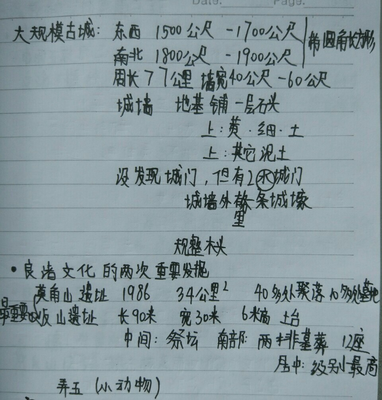 Page.
大规模古城： 东西 1500公尺 -1700公尺
南北 1800公尺 -1900公尺 带圆角长方形
周长7 7公里 墙宽40公尺-60公尺
城墙 地基铺一层石头
上：黄·细·土
上：其它泥土
没发现城门，但有2水城门
城墙外 一条城壕
里
规整木头
• 良渚文化的两次重要发掘
莫角山遗址 1986 34公里² 40多处聚落 10多处墓地
最重要的反山遗址 长90米 宽30米 6米高 土台
中间：祭坛 南部：两排墓葬 12座
居中：级别最高
弄五 (小动物)